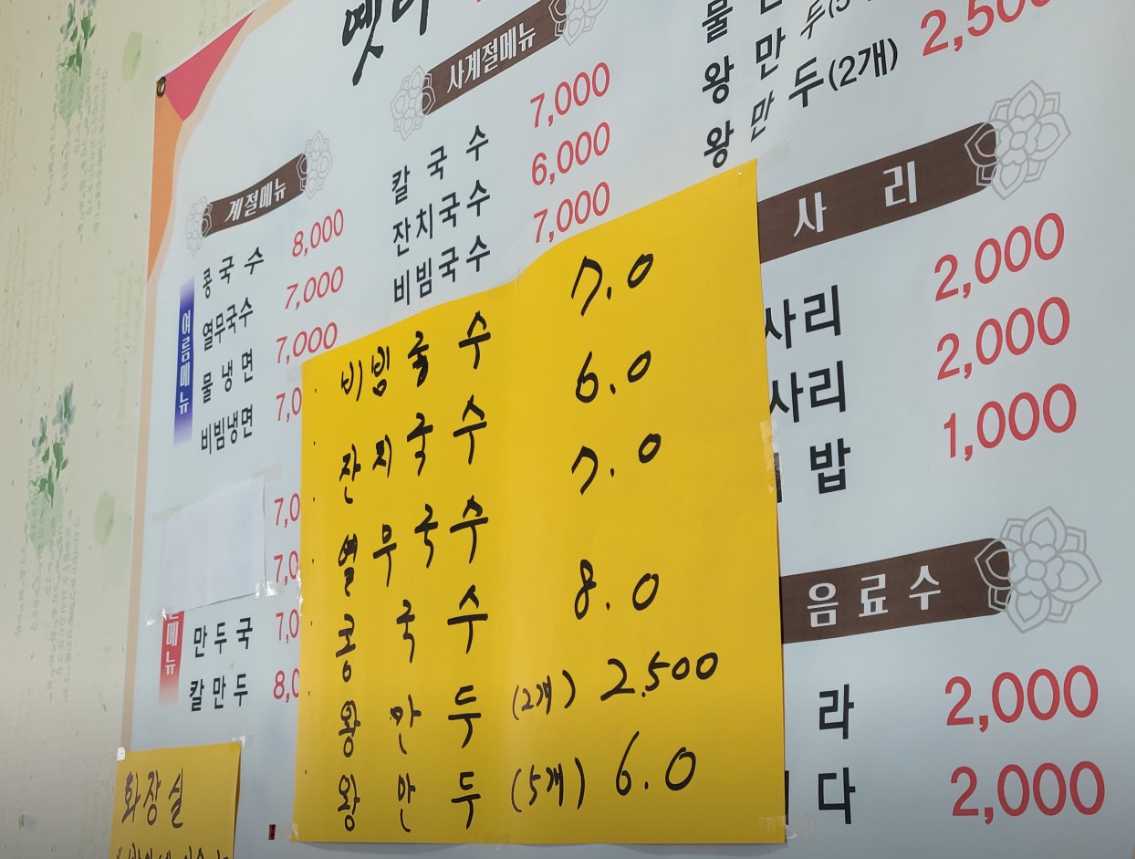 옛
계절메뉴
여름메뉴
콩국수 8,000
열무국수 7,000
물냉면 7,000
비빔냉면 7,0
7,0
7,0
메뉴
만두국 7,0
칼만두 8,0
화장실
사계절메뉴
칼국수 7,000
잔치국수 6,000
비빔국수 7,000
비빔국수 7.0
잔치국수 6.0
열무국수 7.0
콩국수 8.0
왕만두 (2개) 2,500
왕만두 (5개) 6.0
물
왕만두(5
왕만두(2개) 2,500
사리
사리 2,000
사리 2,000
밥 1,000
음료수
라 2,000
다 2,000